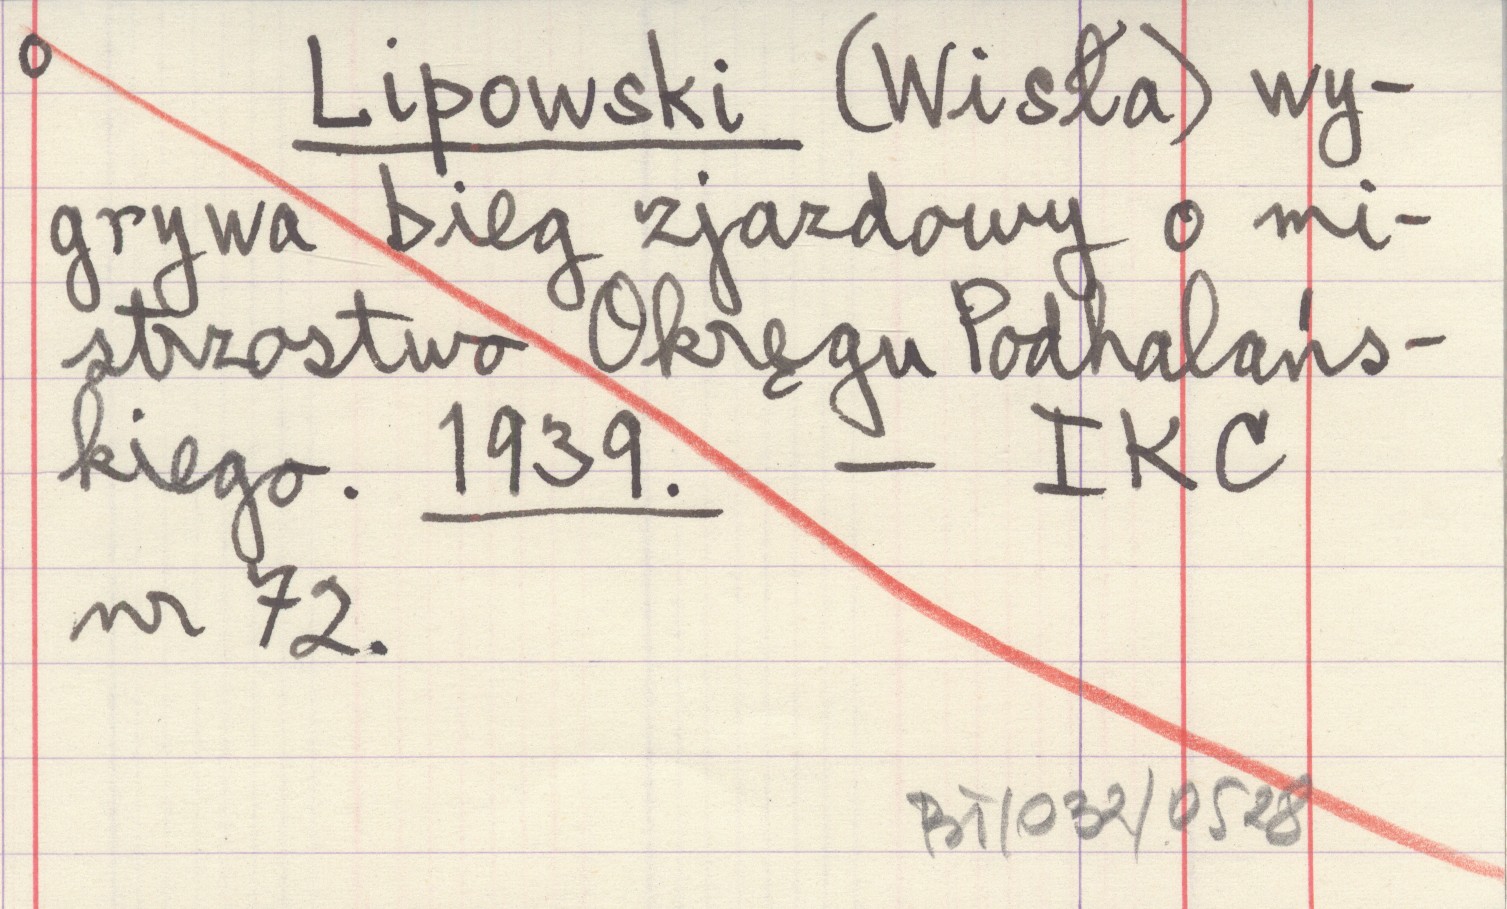 o Lipowski (Wisła) wy-
grywa bieg zjazdowy o mi-
strzostwo Okręgu Podhalańs-
kiego. 1939. — IKC
nr 72.
BT/032/0528